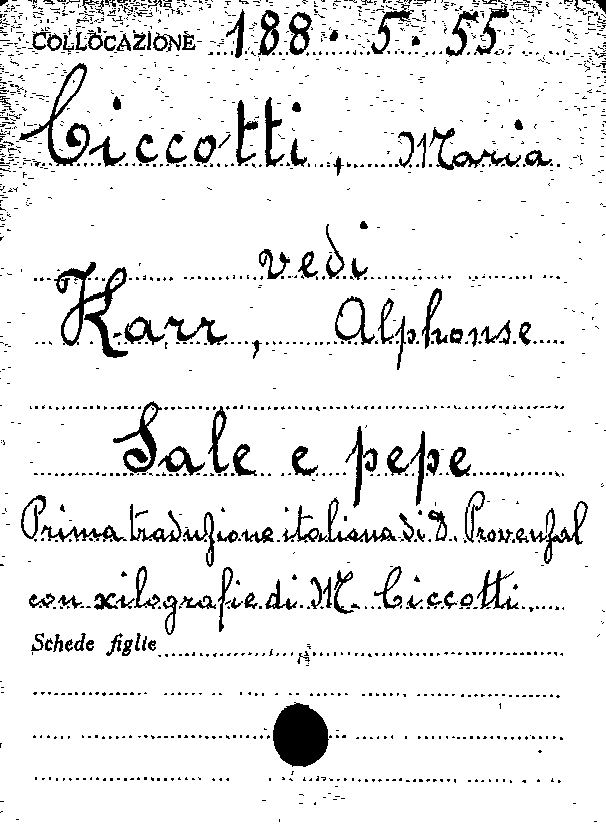 COLLOCAZIONE 188. 5. 55
Ciccotti, Maria
vedi
Karr, Alphonse
Sale e pepe
Prima traduzione italiana di D. Provenzal
con xilografie di M. Ciccotti.
Schede figlie